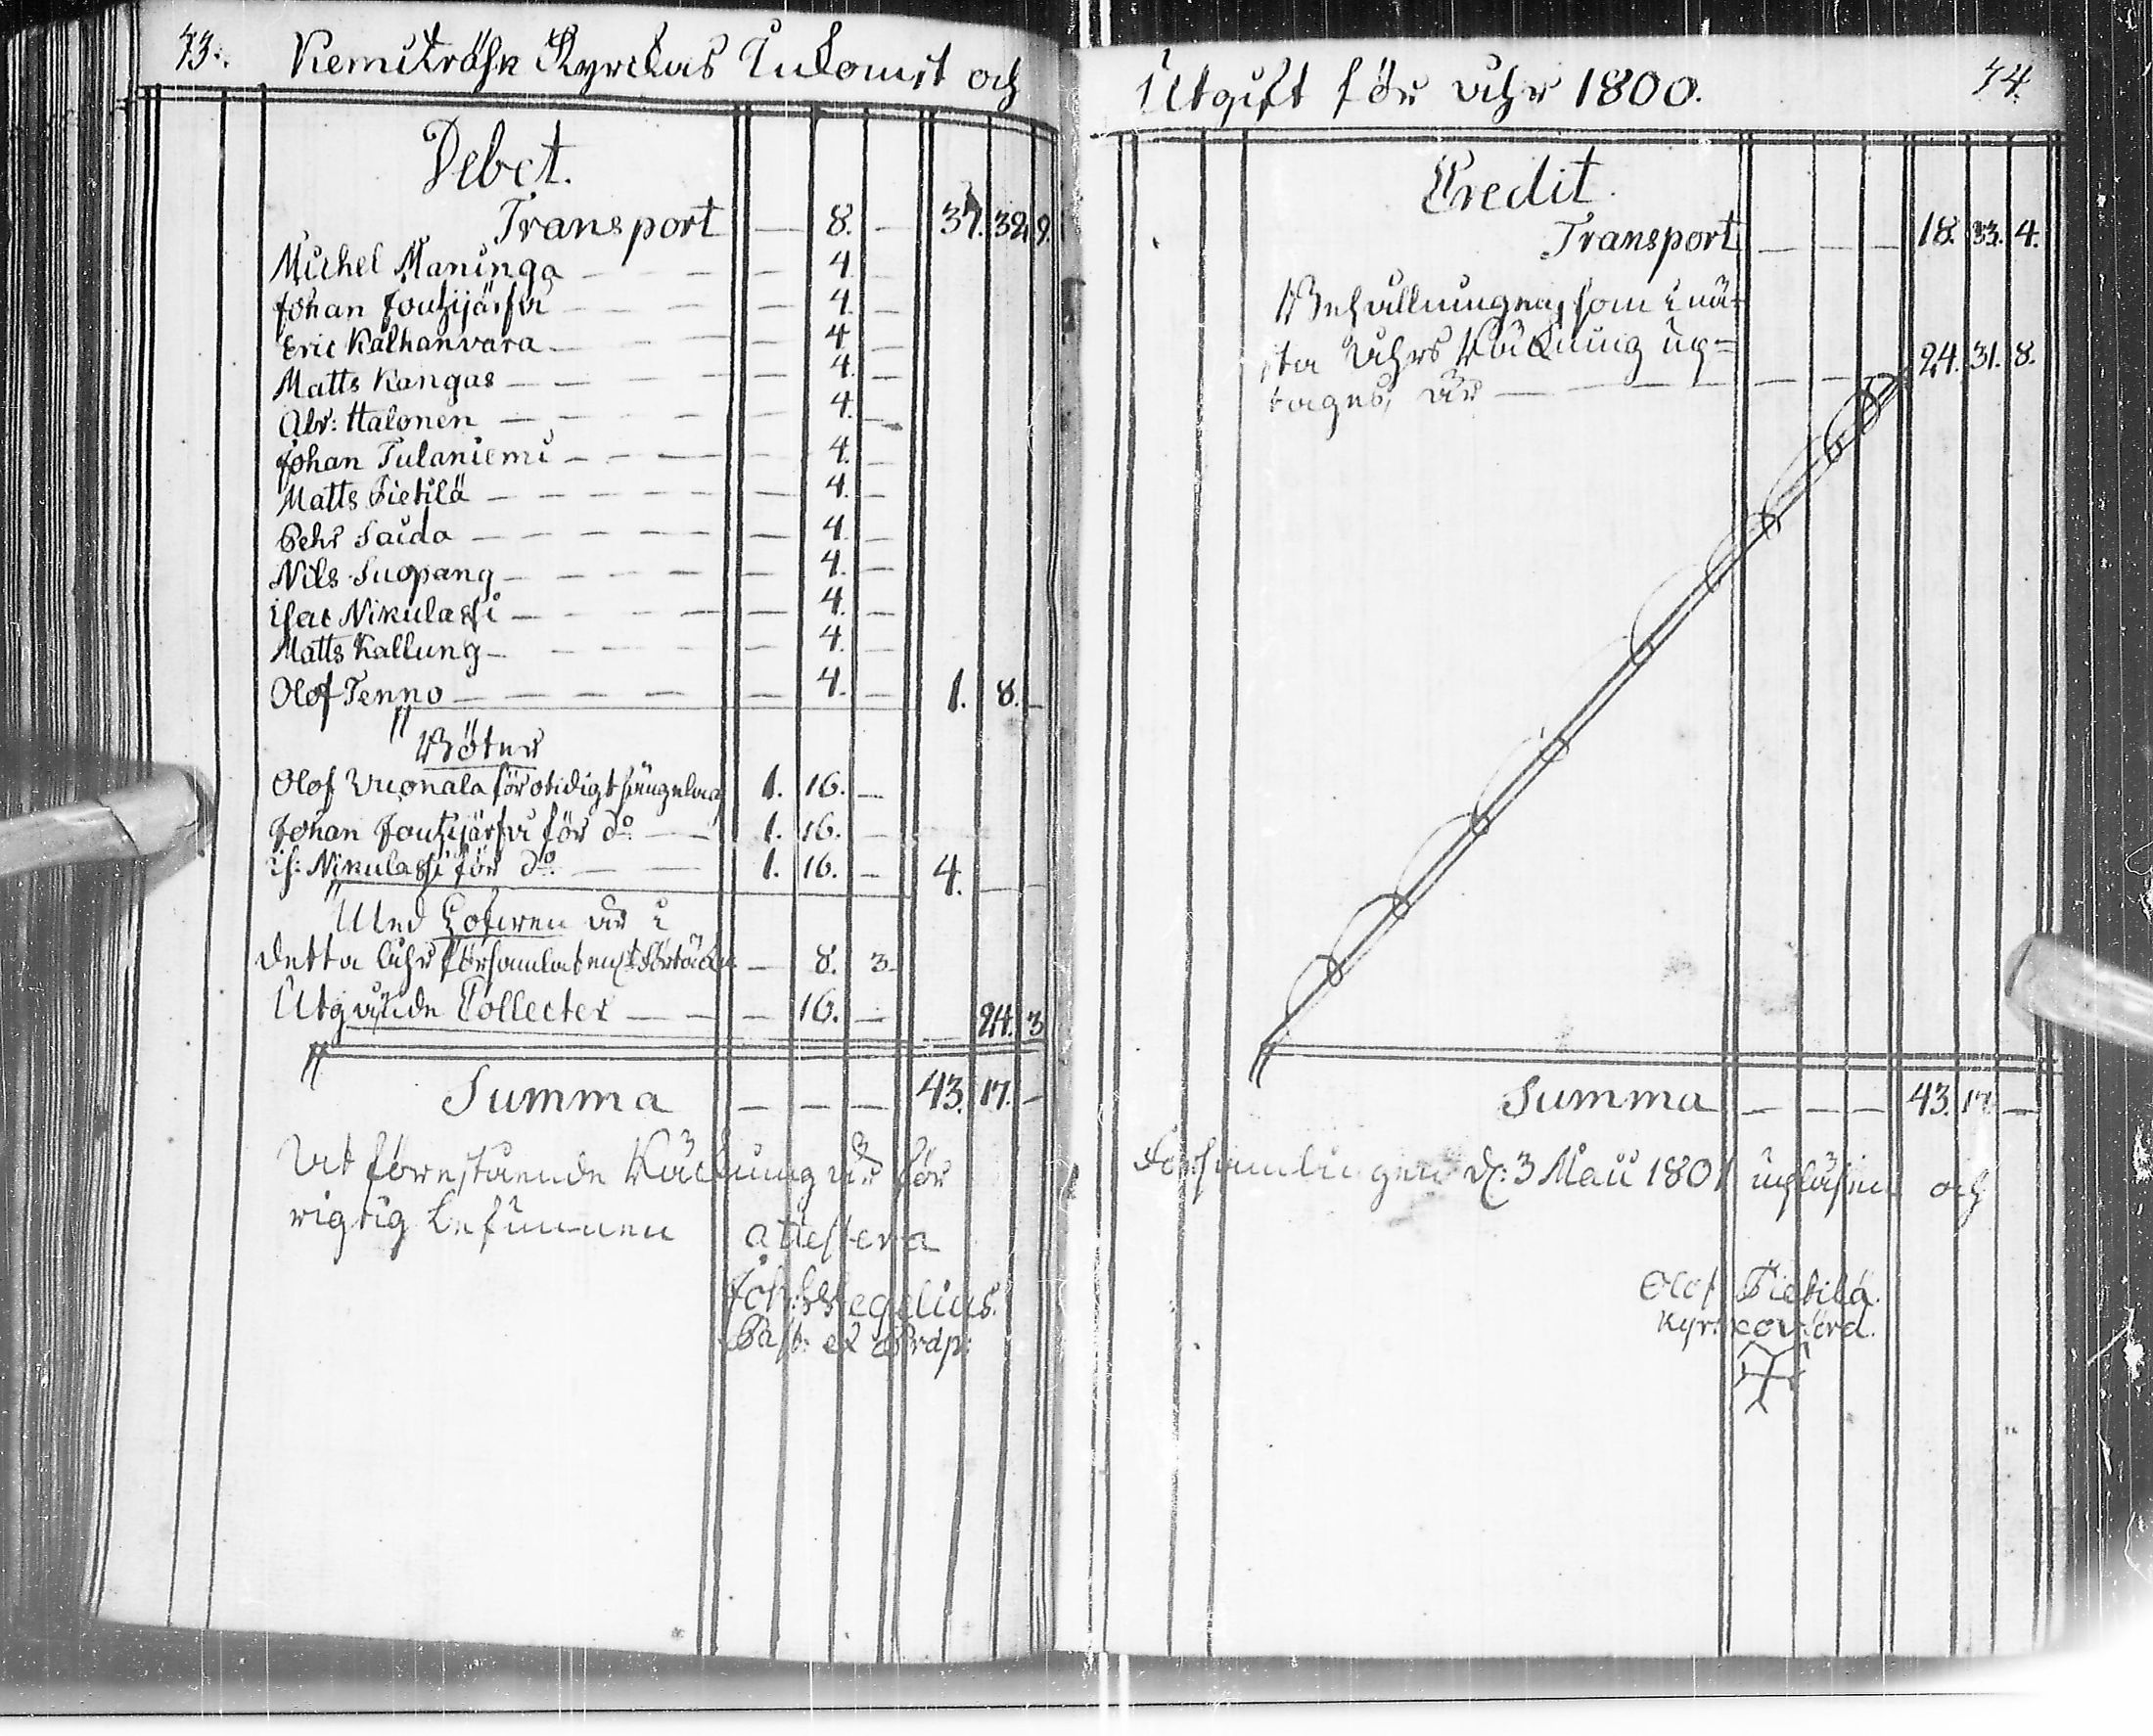 73. Kemiträsk Kyrckas Inkomst och
Debet.
Transport — 8. — 37. 32. 9.
Michel Maninga — 4. —
Johan Joutzijärfvi — 4. —
Eric Kalhanvara — 4 —
Matts Kangas — 4. —
Abr: Halonen — 4. —
Johan Tulaniemi — 4. —
Matts Pietilä — 4. —
Pehr Saida — 4. —
Nils Suopang — 4. —
Isac Nikulassi — 4. —
Matts Kallung — 4. —
Olof Tenno — 4. — 1. 8. —
Böter
Olof Vuonala för otidigt sängelag 1. 16. —
Johan Joutzijärfvi för do — 1. 16. —
Is: Nikulassi för do. — 1. 16. — 4. —
Med Hofwen är i
detta åhr församlat — 8. 3.
Utgående Collecter — 16. — 24. 3
Summa — — — 43. 17. —
At förestående Räckning är för
rigtig befunnen attestera
Joh: Wegelius.
Past: et Præp:
Utgift för åhr 1800. 74.
Credit.
Transport — — — 18. 33. 4.
Behållningen, som i nä-
sta åhrs Räkning up=
tages, är — — — 24. 31. 8.
Summa — — — 43. 17 —
Församlingen d: 3 Maii 1801 upläsen och
Olof Pietilä.
Kyrckovärd.